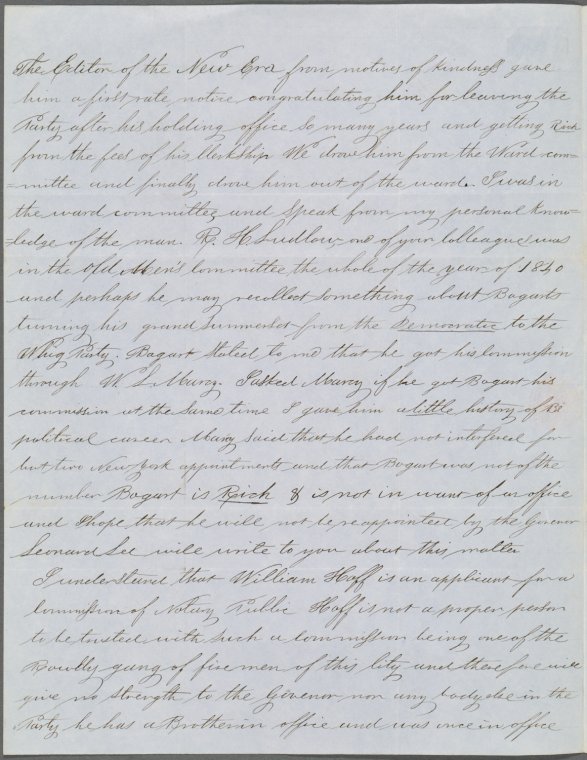 The Editor of the New Era from motives of kindness gave
him a first rate notice congratulating him for leaving the
Party after his holding office so many years and getting Rich
from the fees of his Clerkship We drove him from the Ward com-
=mittee and finally drove him out of the ward. I was in
the ward committee and speak from my personal know-
=ledge of the man. R. H. Ludlow one of your Colleagues was
in the Old Men's Committee the whole of the year of 1840
and perhaps he may recollect something about Bogarts
turning his grand Summerset from the Democratic to the
Whig Party. Bogart stated to me that he got his Commission
through W L Marcy. I asked Marcy if he got Bogart his
commission at the same time I gave him a little history of his
political career Marcy said that he had not interfered for
but two New York appointments and that Bogart was not of the
number Bogart is Rich & is not in want of an office
and I hope that he will not be reappointed by the Govenor
Leonard Lee will write to you about this matter
I understand that William Hoff is an applicant for a
Commission of Notary Public Hoff is not a proper person
to be trusted with such a Commission being one of the
Rowdy gang of fire men of this City and therefore will
give no strength to the Govenor nor any body else in the
Party he has a Brother in office and was once in office